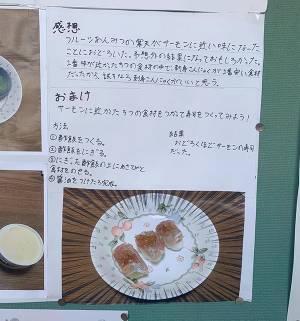 感想
フルーツあんみつの寒天がサーモンに近い味になった
ことにおどろいた。予想外の結果になっておもしろかった。
1番味が近かった5つの食材の中で、刺身こんにゃくが1番安い食材
だったから、試すなら刺身こんにゃくがいいと思う。
おまけ
サーモンに近かった5つの食材をつかって寿司をつくってみよう!
方法
①酢飯をつくる。
②酢飯をにぎる。
③にぎった酢飯の上にあきさげと
食材をのせる。
④醤油をつけたら完成。
結果
おどろくほどサーモンの寿司
だった。